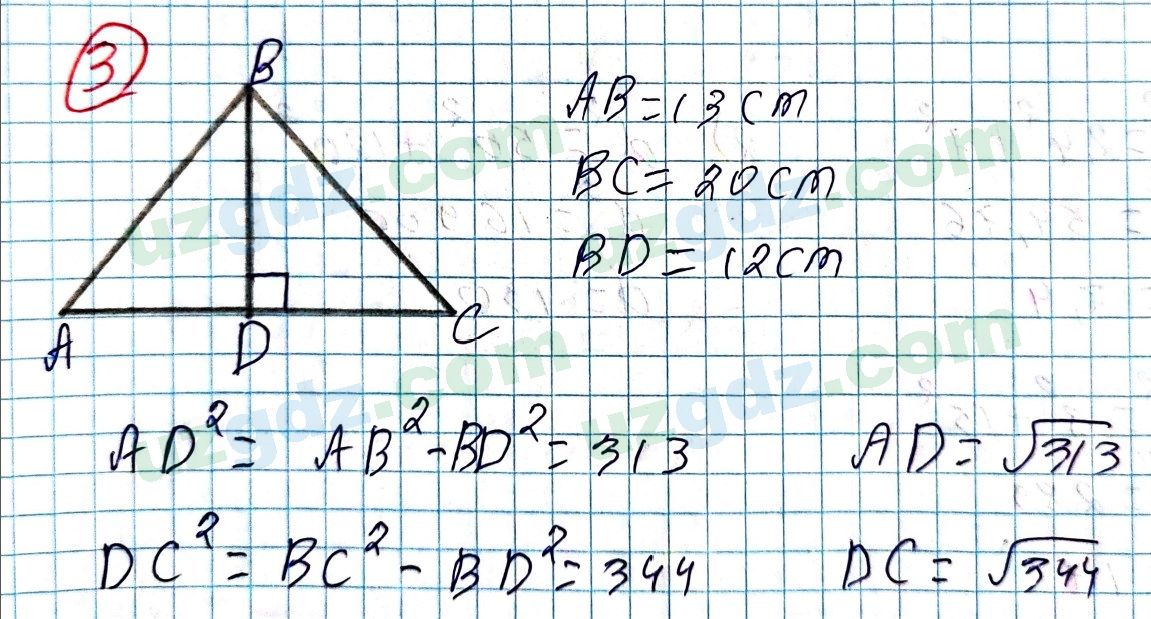 3
B
AB = 13 cm
BC = 20 cm
BD = 12 cm
A D C
AD² = AB² - BD² = 313 AD = √313
DC² = BC² - BD² = 344 DC = √344
uzgdz.com
uzgdz.com
uzgdz.com
uzgdz.com